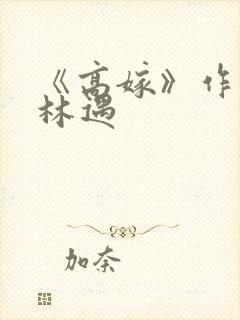 《高嫁》作
林遇
加奈